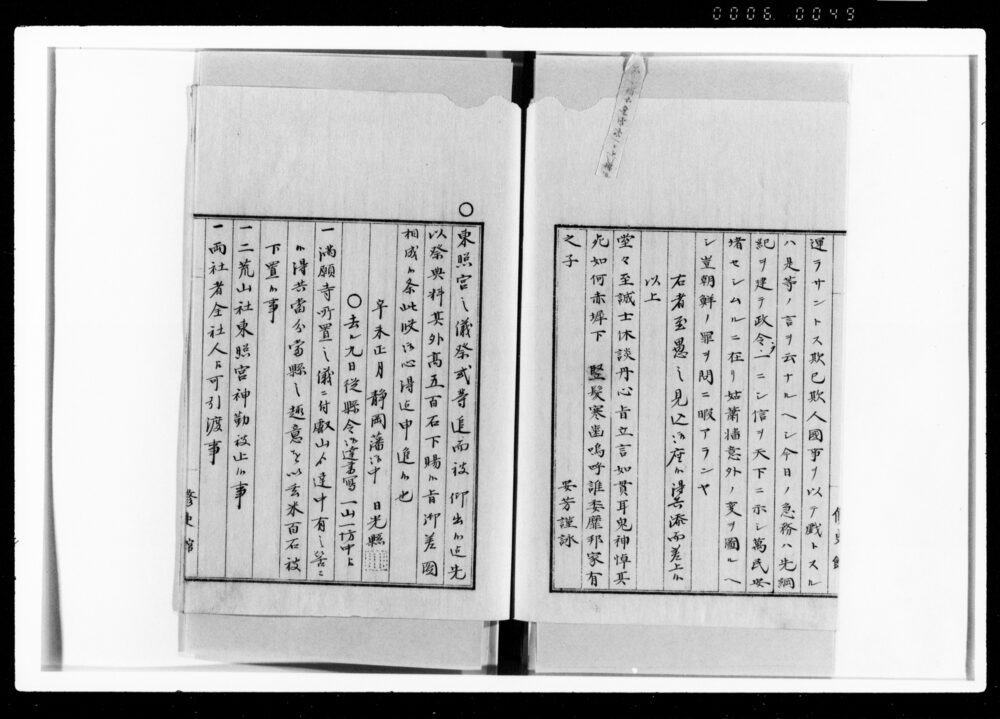 0006 0049
運ラサントス欺已欺人國事ヲ以テ戯トスル
ハ是等ノ言ヲ云ナルヘシ今日ノ急務ハ先綱
紀ヲ建テ政令一ニシ信ヲ天下ニ示シ萬民安
堵セシムルニ在リ姑蕭墻意外ノ変ヲ圖ルヘ
シ豈朝鮮ノ罪ヲ問ニ暇アランヤ
右者至愚之見込ニ御座候得共添而差上候
以上
堂々至誠士休談丹心旨立言如貫耳鬼神悼其
死如何赤墀下 竪髪寒歯嗚呼誰委靡邦家有
之子
安芳謹詠
修史館
○
東照宮之儀祭式等追而被 仰出候迄先
以祭典料其外高五百石下賜候旨御差圖
相成候条此段御心得迄申進候也
辛未正月 静岡藩御中 日光縣
○去ル九日従縣令御達書写 一山一坊中ゟ
一満願寺所置之儀ニ付叡山ゟ達中有之筈ニ
候得共當分當縣之趣意を以玄米百石被
下置候事
一二荒山社東照宮神勤被止候事
一両社者全社人ゟ可引渡事
修史館